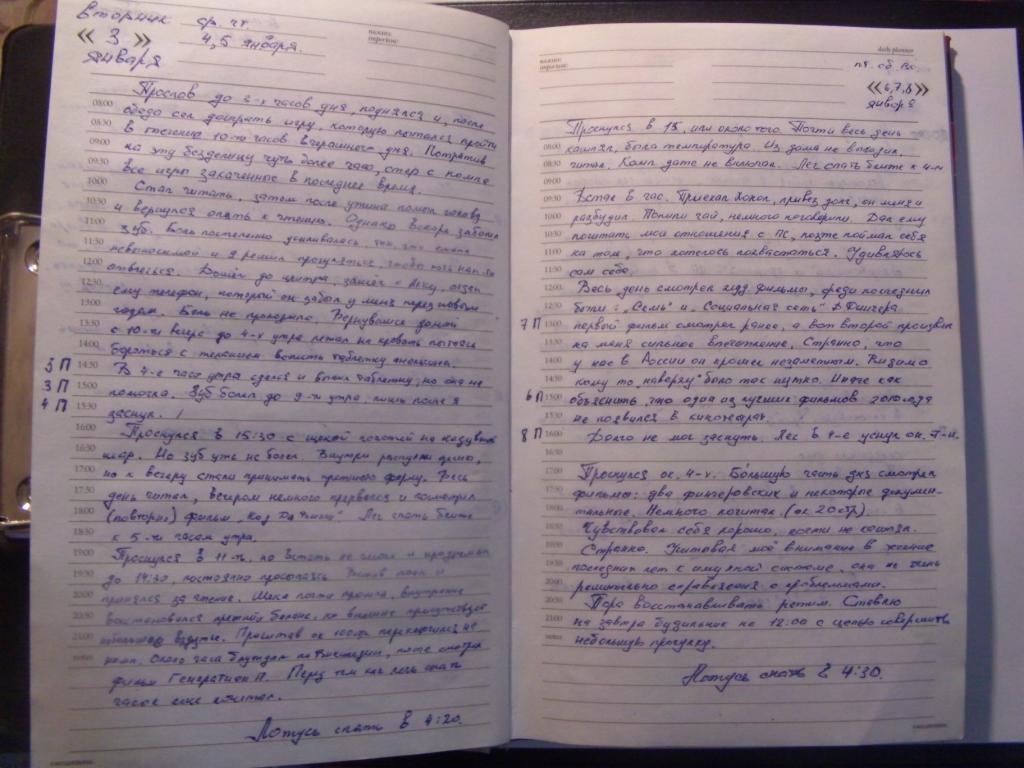 Вторник ср. чт
« 3 » 4, 5 января.
Января
Проспав до 3-х часов дня, поднялся и, после
обеда сел доиграть игру, которую пытался пройти
в течении 10-ти часов вчерашнего дня. Потратив
на эту безделицу чуть более часа, стер с компа
все игры закаченные в последнее время.
Стал читать, затем после ужина помыл голову
и вернулся опять к чтению. Однако вскоре заболел
зуб. Боль постепенно усиливалась, так, что стала
невыносимой и я решил прогуляться, чтобы хоть как-то
отвлечься. Дошёл до центра, зашёл к
ему телефон, который он забыл у меня перед новым
годом. Боль не проходила. Вернувшись домой
с 10-ти вечера до 4-х утра лежал на кровати пытаясь
бороться с желанием выпить таблетку анальгина.
В 4-е часа утра сдался и выпил таблетку, но она не
помогла. Зуб болел до 9-ти утра, лишь после я
заснул.
Проснулся в 15:30 с щекой похожей на надувной
шар. Но зуб уже не болел. Внутри распухли дёсны,
но к вечеру стали принимать прежнюю форму. Весь
день читал, вечером немного прервался и посмотрел
(повторно) фильм „Код Да Винчи". Лёг спать ближе
к 5-ти часам утра.
Проснулся в 11-ть, но встать не смог и продремал
до 14:30, постоянно просыпаясь. Встав поел и
принялся за чтение. Щека почти прошла, внутренне
восстановился прежний баланс, но внешне присутствует
небольшое вздутие. Прочитав ок 100стр переключился на
комп. Около часа блуждал по Википедии, после смотрел
фильм Генератион П. Перед тем как лечь спать
часок ещё читал.
Ложусь спать в 4:20.
5 П
3 П
4 П
важно:
important:
важно:
important:
daily planner
пя. сб. Вс.
« 6,7,8 »
января
Проснулся в 15, или около того. Почти весь день
кашлял, была температура. Из дома не выходил,
читал. Комп даже не включал. Лёг спать ближе к 4-м
Встал в час. Приехал Хохол, привёз долг, он меня и
разбудил. Попили чай, немного поговорили. Дал ему
почитать мои отношения с ПС, позже поймал себя
на том, что хотелось похвастаться. Удивляюсь
сам себе.
Весь день смотрел фильмы, среди последних
были: „Семь" и „Социальная сеть" Д. Финчера
первый фильм смотрел ранее, а вот второй произвёл
на меня сильное впечатление. Странно, что
у нас в России он прошел незаметным. Видимо
кому то „наверху" было так нужно. Иначе как
объяснить, что один из лучших фильмов 2010-года
не появился в кинотеатрах.
Долго не мог заснуть. Лёг в 4-е уснул ок. 7-и.
Проснулся ок. 4-х. Большую часть дня смотрел
фильмы: два финчеровских и некоторые докумен-
тальные. Немного почитал. (ок 20стр).
Чувствовал себя хорошо, почти не кашлял.
Странно. Учитывая моё внимание в течение
последних лет к имунной системе, она не очень
решительно справляется с проблемами.
Пора восстанавливать режим. Ставлю
на завтра будильник на 12:00 с целью совершить
небольшую прогулку.
Ложусь спать в 4:30.
7 П
6 П
8 П